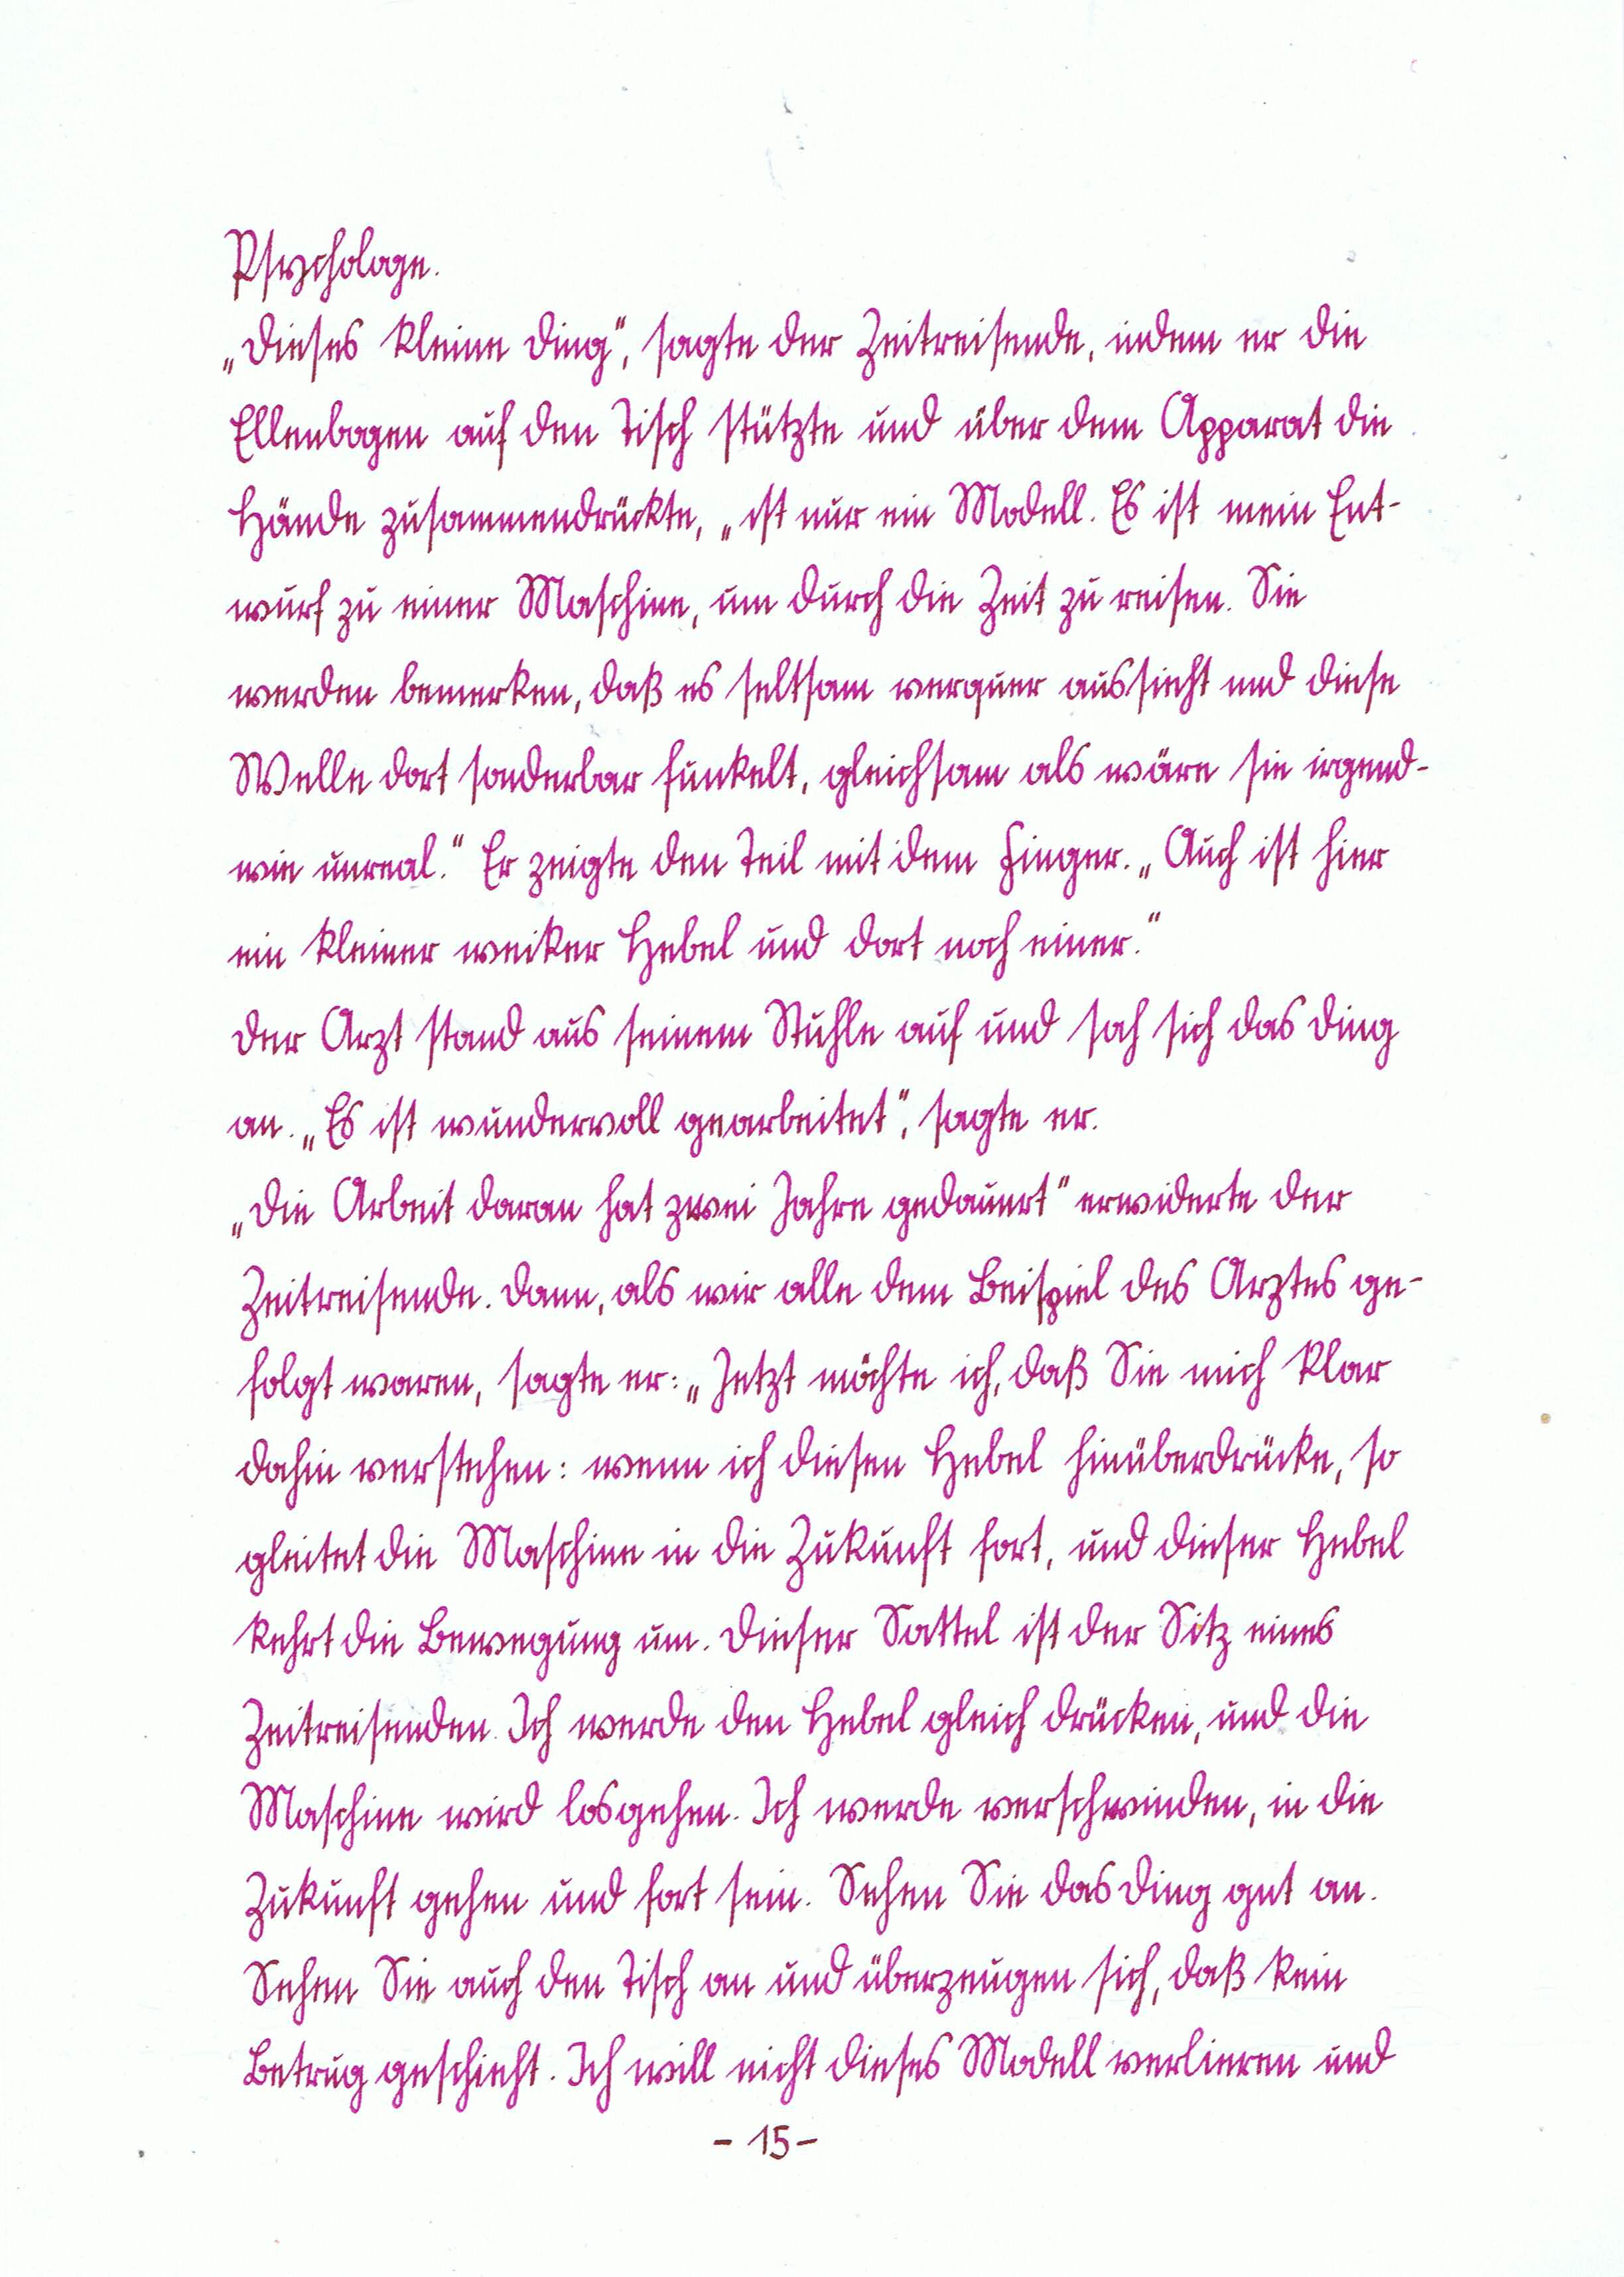 Psychologe.
„Dieses kleine Ding“, sagte der Zeitreisende, indem er die
Ellenbogen auf den Tisch stützte und über dem Apparat die
Hände zusammendrückte, „ist nur ein Modell. Es ist mein Ent-
wurf zu einer Maschine, um durch die Zeit zu reisen. Sie
werden bemerken, daß es seltsam verquer aussieht und diese
Welle dort sonderbar funkelt, gleichsam als wäre sie irgend-
wie unreal.“ Er zeigte den Teil mit dem Finger. „Auch ist hier
ein kleiner weiker Hebel und dort noch einer.“
Der Arzt stand aus seinem Stuhle auf und sah sich das Ding
an. „Es ist wundervoll gearbeitet“, sagte er.
„Die Arbeit daran hat zwei Jahre gedauert“ erwiderte der
Zeitreisende. Dann, als wir alle dem Beispiel des Arztes ge-
folgt waren, sagte er: „Jetzt möchte ich, daß Sie mich klar
dahin verstehen: wenn ich diesen Hebel hinüberdrücke, so
gleitet die Maschine in die Zukunft fort, und dieser Hebel
kehrt die Bewegung um. Dieser Sattel ist der Sitz eines
Zeitreisenden. Ich werde den Hebel gleich drücken, und die
Maschine wird losgehen. Ich werde verschwinden, in die
Zukunft gehen und fort sein. Sehen Sie das Ding gut an.
Sehen Sie auch den Tisch an und überzeugen sich, daß kein
Betrug geschieht. Ich will nicht dieses Modell verlieren und
- 15 -